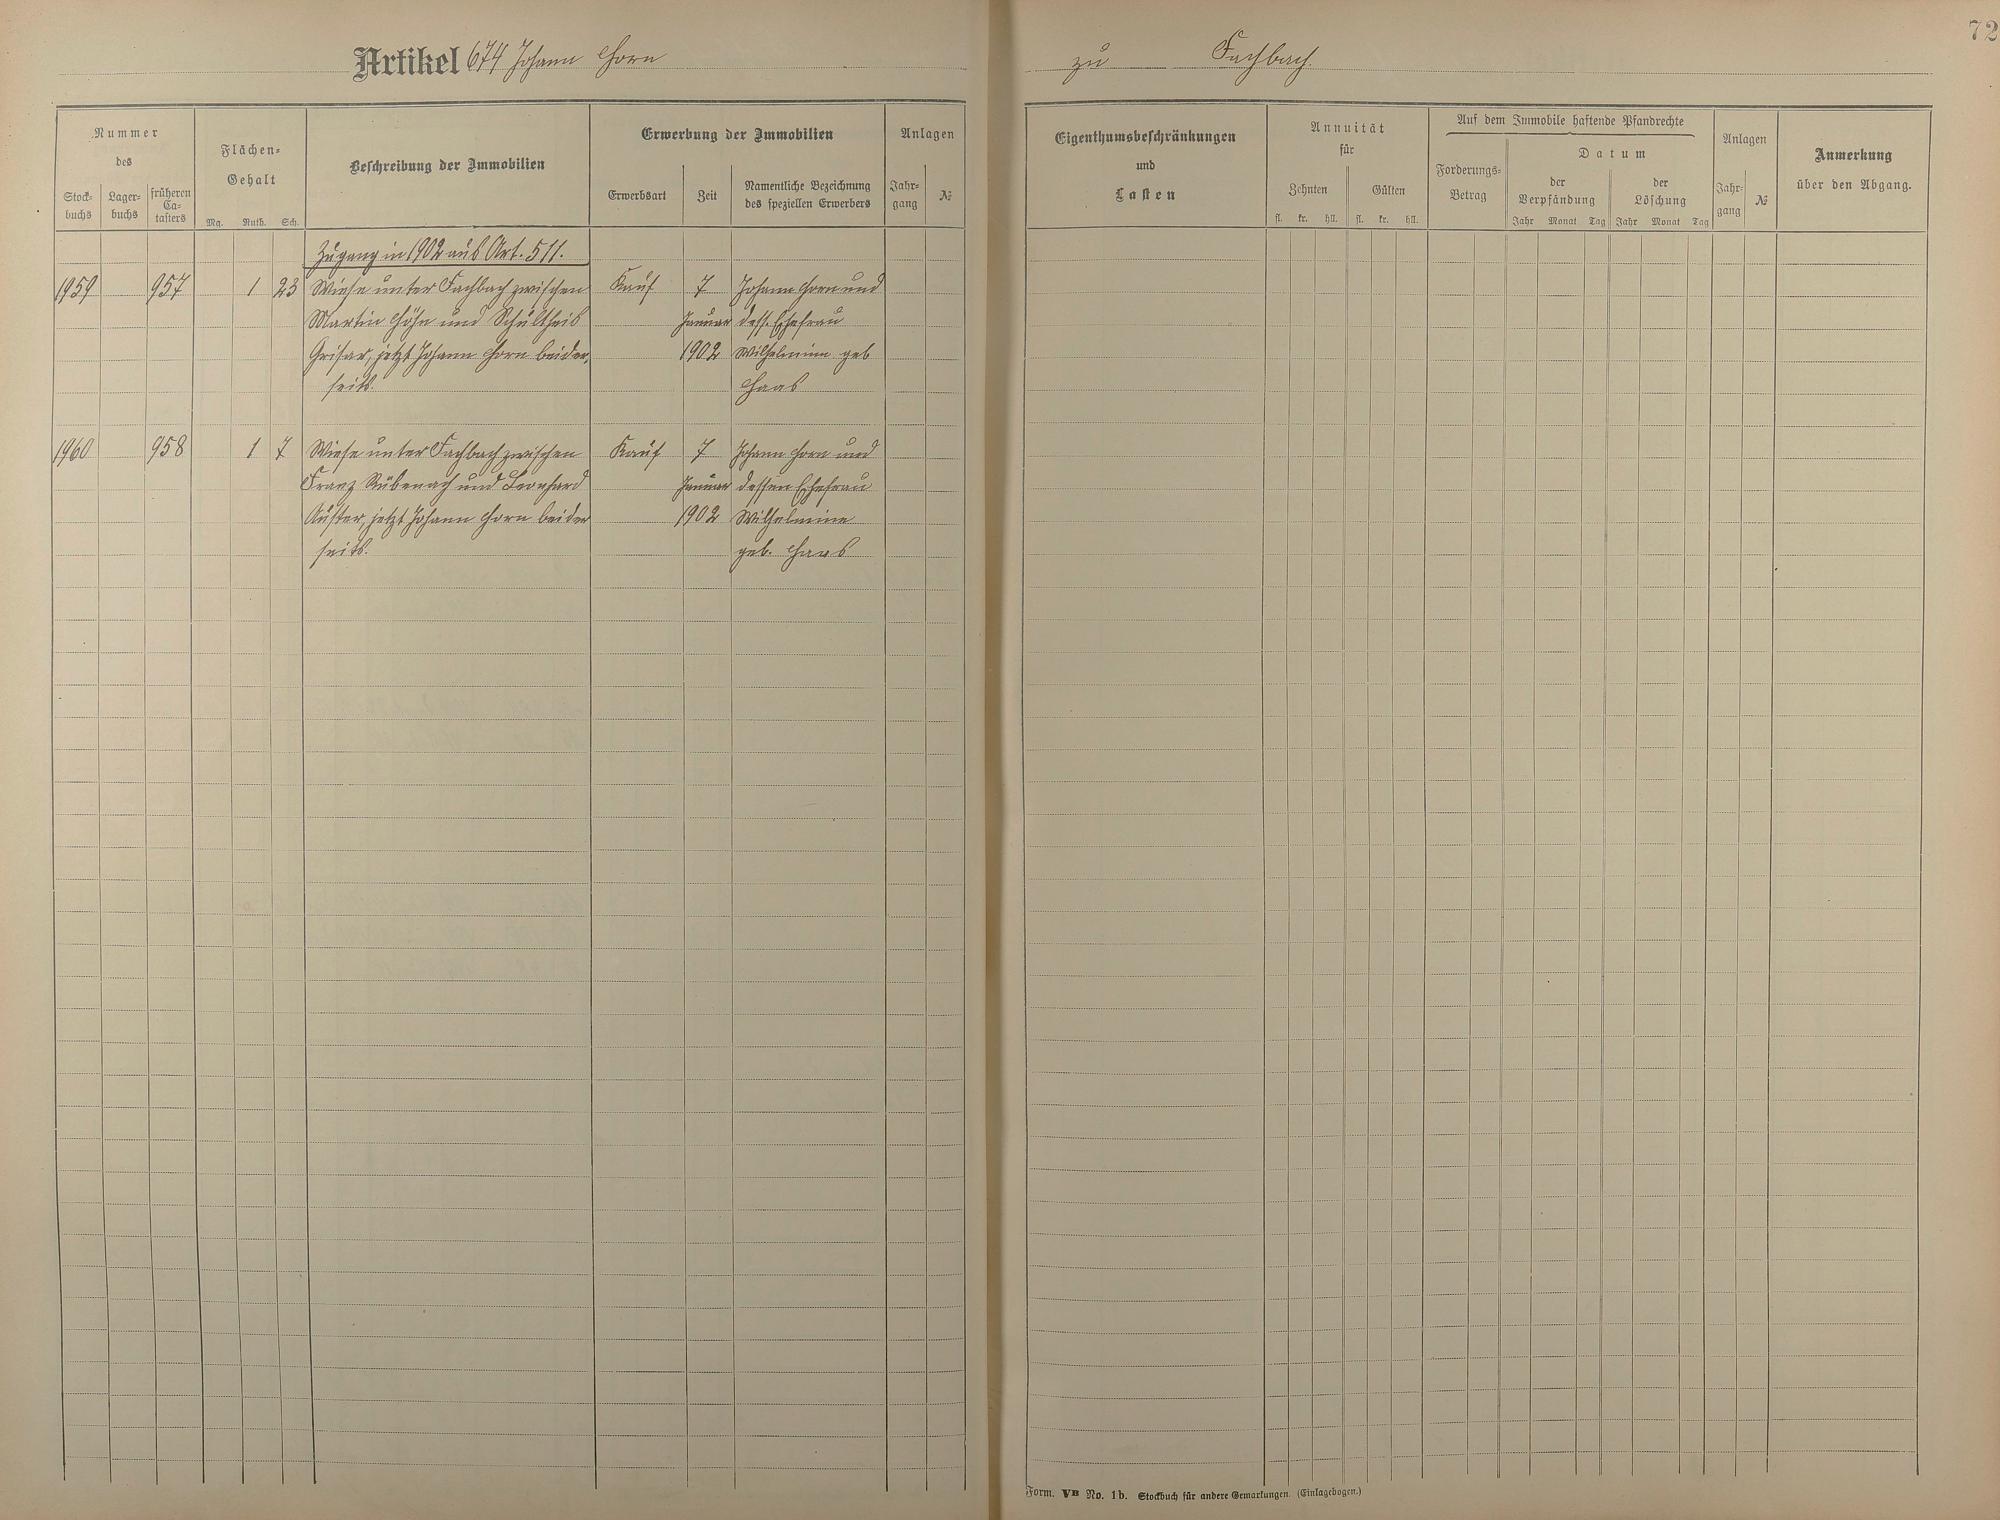 72
Artikel 674 Johann Horn
zu Fachbach
Nummer
des
Stock-
buchs
Lager-
buchs
früheren
Ca-
tasters
Flächen-
Gehalt
Mg. Ruth. Sch.
Beschreibung der Immobilien
Erwerbung der Immobilien
Erwerbsart
Zeit
Namentliche Bezeichnung
des speziellen Erwerbers
Anlagen
Jahr-
gang
№
Zugang in 1902 aus Art. 511.
1959 957 1 23 Wiese unter Fachbach zwischen Kauf 7 Johann Horn und
Martin Höhn und Schultheis Januar dess. Ehefrau
Grisar, jetzt Johann Horn beider- 1902 Wilhelmine geb
seits. Haas
1960 958 1 7 Wiese unter Fachbach zwischen Kauf 7 Johann Horn und
Franz Rübenach und Leonhard Januar dessen Ehefrau
Auster, jetzt Johann Horn beider 1902 Wilhelmine
seits. geb. Haas
Eigenthumsbeschränkungen
und
Lasten
Annuität
für
Zehnten
fl. kr. hll.
Gülten
fl. kr. hll.
Auf dem Immobile haftende Pfandrechte
Forderungs-
Betrag
Datum
der
Verpfändung
Jahr Monat Tag
der
Löschung
Jahr Monat Tag
Anlagen
Jahr-
gang
№
Anmerkung
über den Abgang.
Form. VB No. 1b. Stockbuch für andere Gemarkungen. (Einlagebogen.)